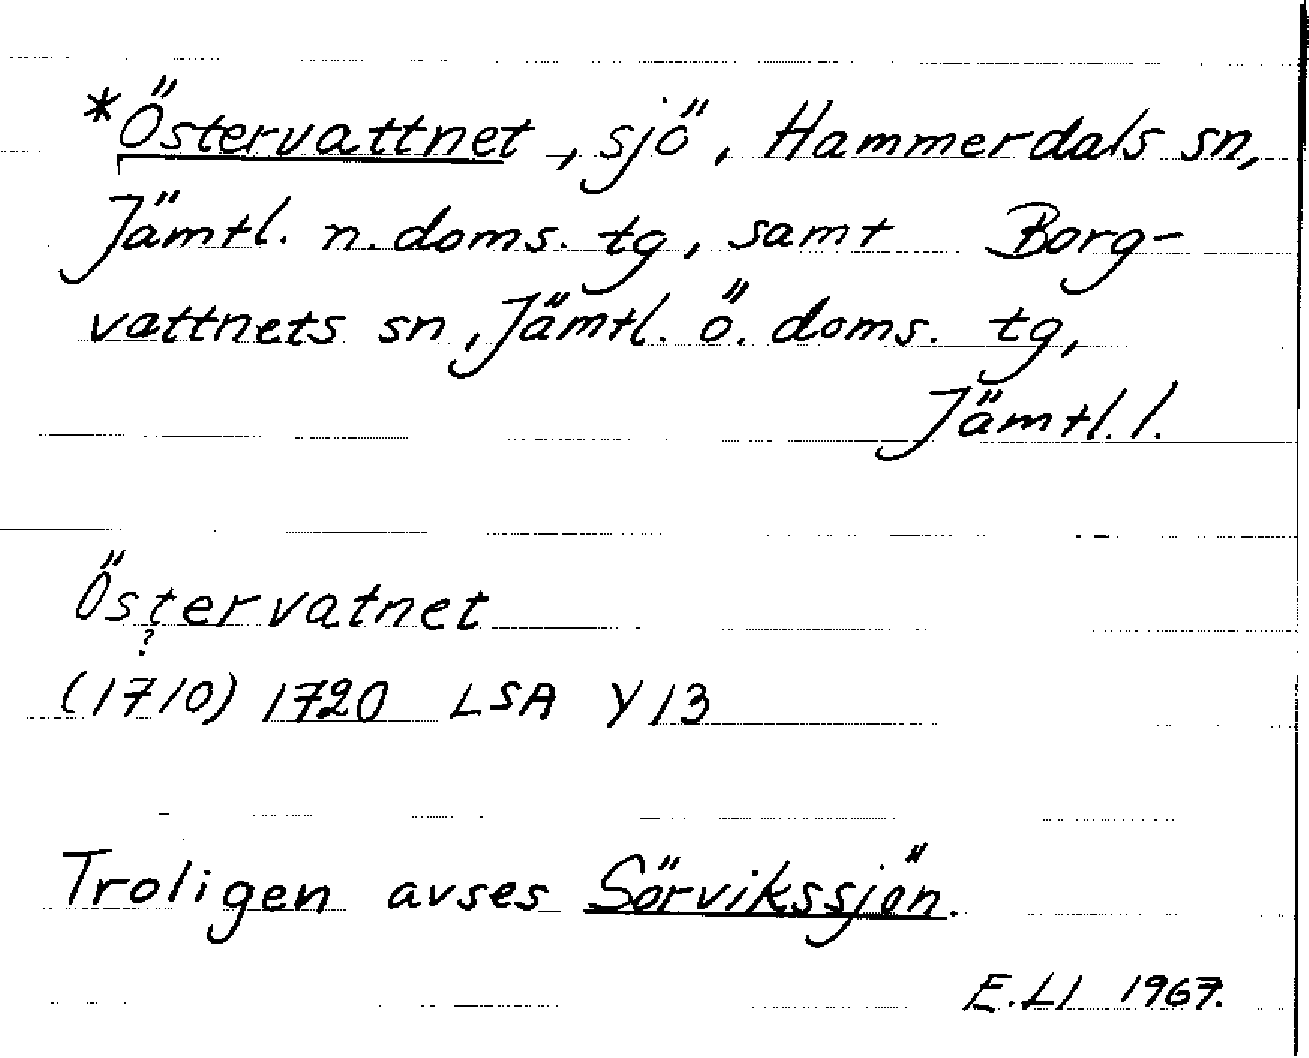 *Östervattnet, sjö, Hammerdals sn,
Jämtl. n. doms. tg, samt Borg-
vattnets sn, Jämtl. ö. doms. tg,
Jämtl. l.
Östervatnet
?
(1710) 1720 LSA Y 13
Troligen avses Sörvikssjön.
E. Ll 1967.